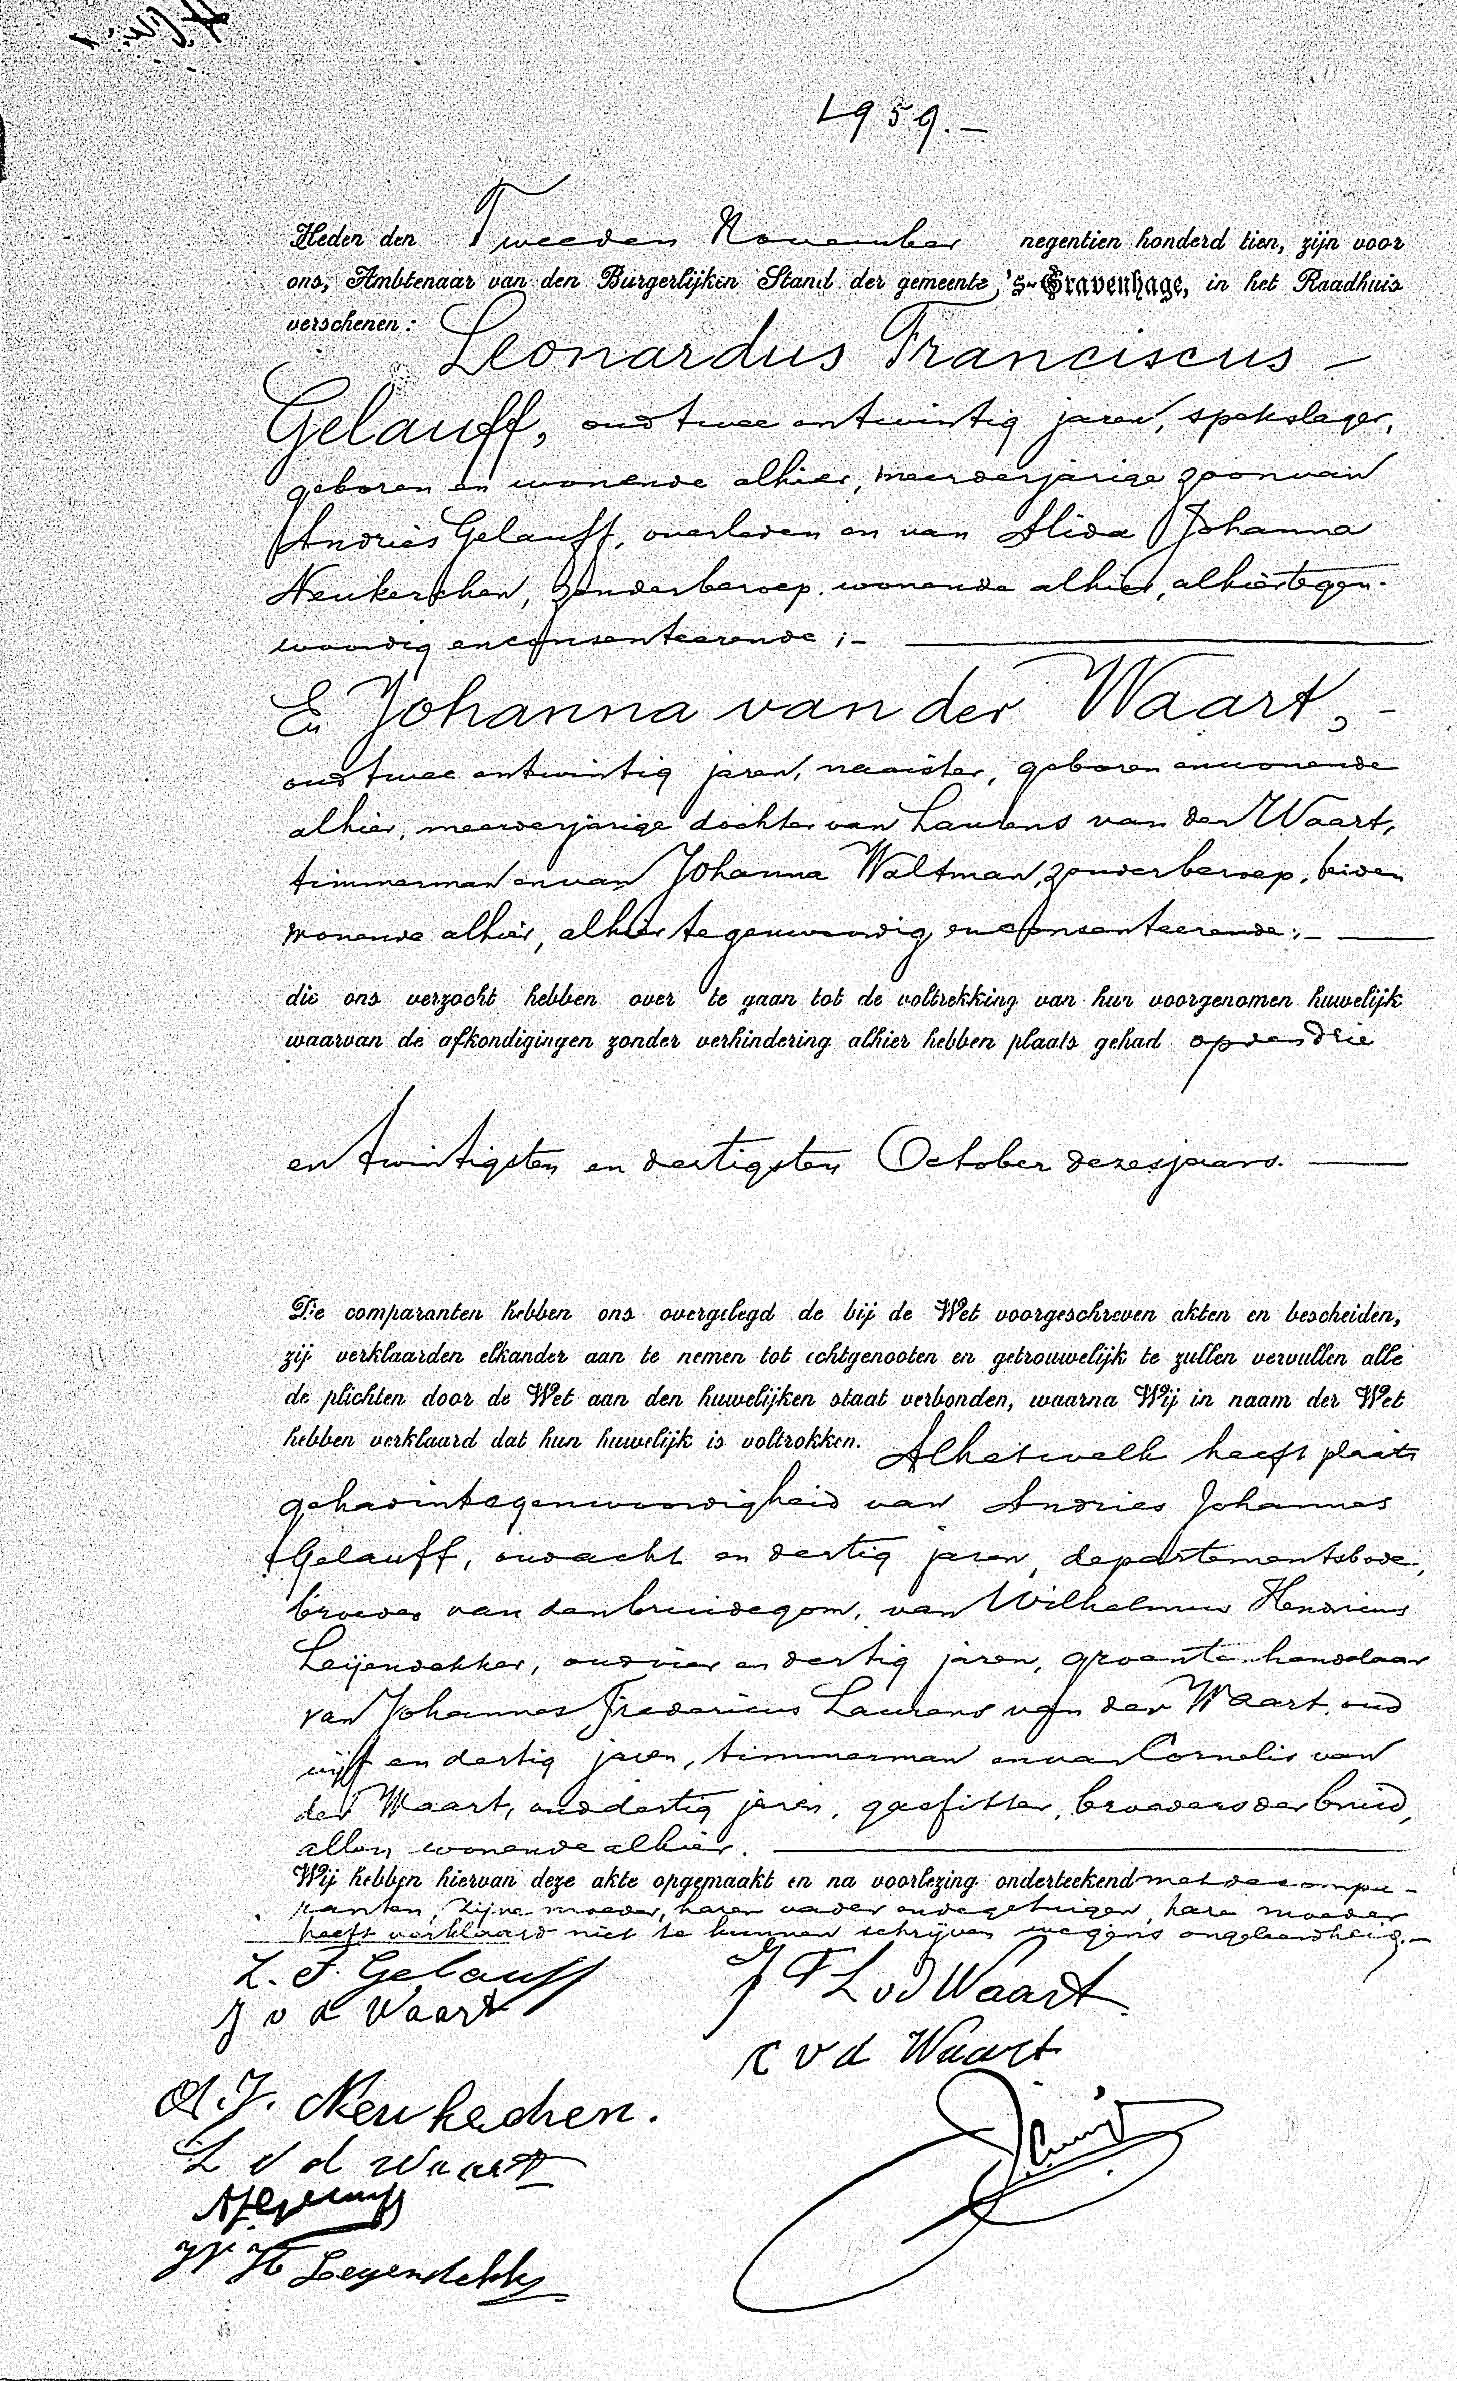 1959.-
Heden den Tweeden November negentien honderd tien, zijn voor
ons, Ambtenaar van den Burgerlijken Stand der gemeente 's-Gravenhage, in het Raadhuis
verschenen: Leonardus Franciscus -
Gelauff, oud twee en twintig jaren, spekslager,
geboren en wonende alhier, meerderjarige zoon van
Andries Gelauff, overleden en van Alida Johanna
Neukerchen, zonder beroep, wonende alhier, alhier tegen-
woordig en consenteerende ;-
En Johanna van der Waart, -
oud twee en twintig jaren, naaister, geboren en wonende
alhier, meerderjarige dochter van Laurens van der Waart,
timmerman en van Johanna Waltman, zonder beroep, beiden
wonende alhier, alhier tegenwoordig en consenteerende ;-
die ons verzocht hebben over te gaan tot de voltrekking van hun voorgenomen huwelijk
waarvan de afkondigingen zonder verhindering alhier hebben plaats gehad op den drie
en twintigsten en dertigsten October dezes jaars.
De comparanten hebben ons overgelegd de bij de Wet voorgeschreven akten en bescheiden,
zij verklaarden elkander aan te nemen tot echtgenooten en getrouwelijk te zullen vervullen alle
de plichten door de Wet aan den huwelijken staat verbonden, waarna Wij in naam der Wet
hebben verklaard dat hun huwelijk is voltrokken. Al hetwelk heeft plaats
gehad in tegenwoordigheid van Andries Johannes
Gelauff, oud acht en dertig jaren, departementsbode,
broeder van den bruidegom, van Wilhelmus Hendricus
Leijendekker, oud vier en dertig jaren, groentenhandelaar
van Johannes Fredericus Laurens van der Waart, oud
vijf en dertig jaren, timmerman en van Cornelis van
der Waart, oud dertig jaren, gasfitter, broeders der bruid,
allen wonende alhier.
Wij hebben hiervan deze akte opgemaakt en na voorlezing onderteekend met de compa-
ranten, zijne moeder, haren vader en de getuigen, hare moeder
heeft verklaard niet te kunnen schrijven wegens ongeleerdheid.-
L. F. Gelauff
J v d Waart
A. J. Neukerchen.
L v d Waart
AJGelauff
W H Leyendekker
J F L vd Waart
C v d Waart